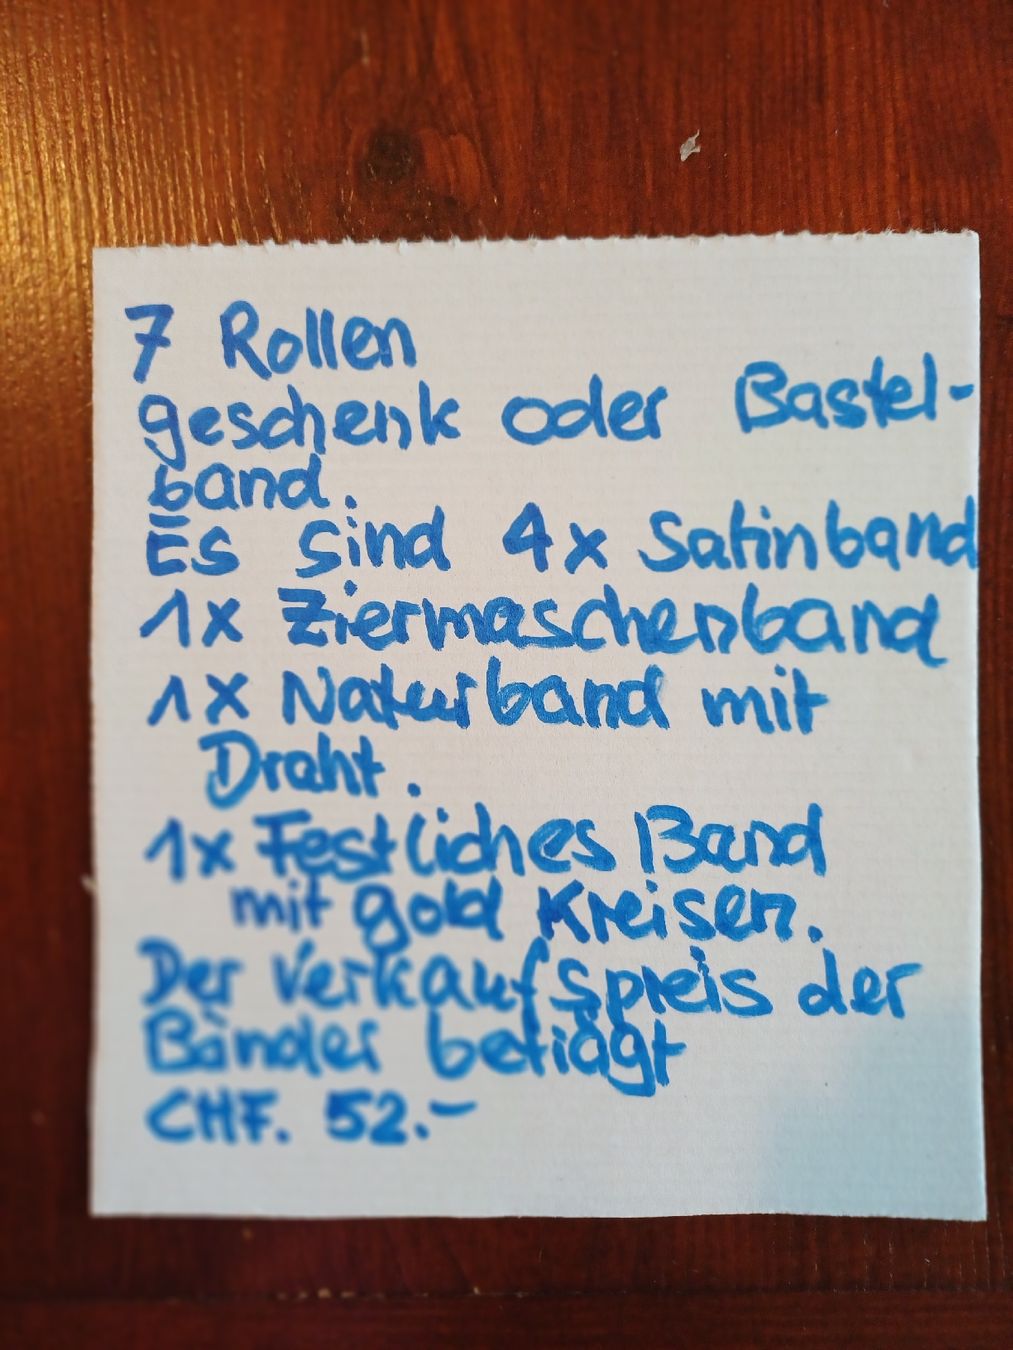 7 Rollen
geschenk oder Bastel-
band.
Es sind 4x Satinband
1x Ziermaschenband
1x Naturband mit
Draht.
1x Festliches Band
mit gold Kreisen.
Der Verkaufspreis der
Bänder beträgt
CHF. 52.-